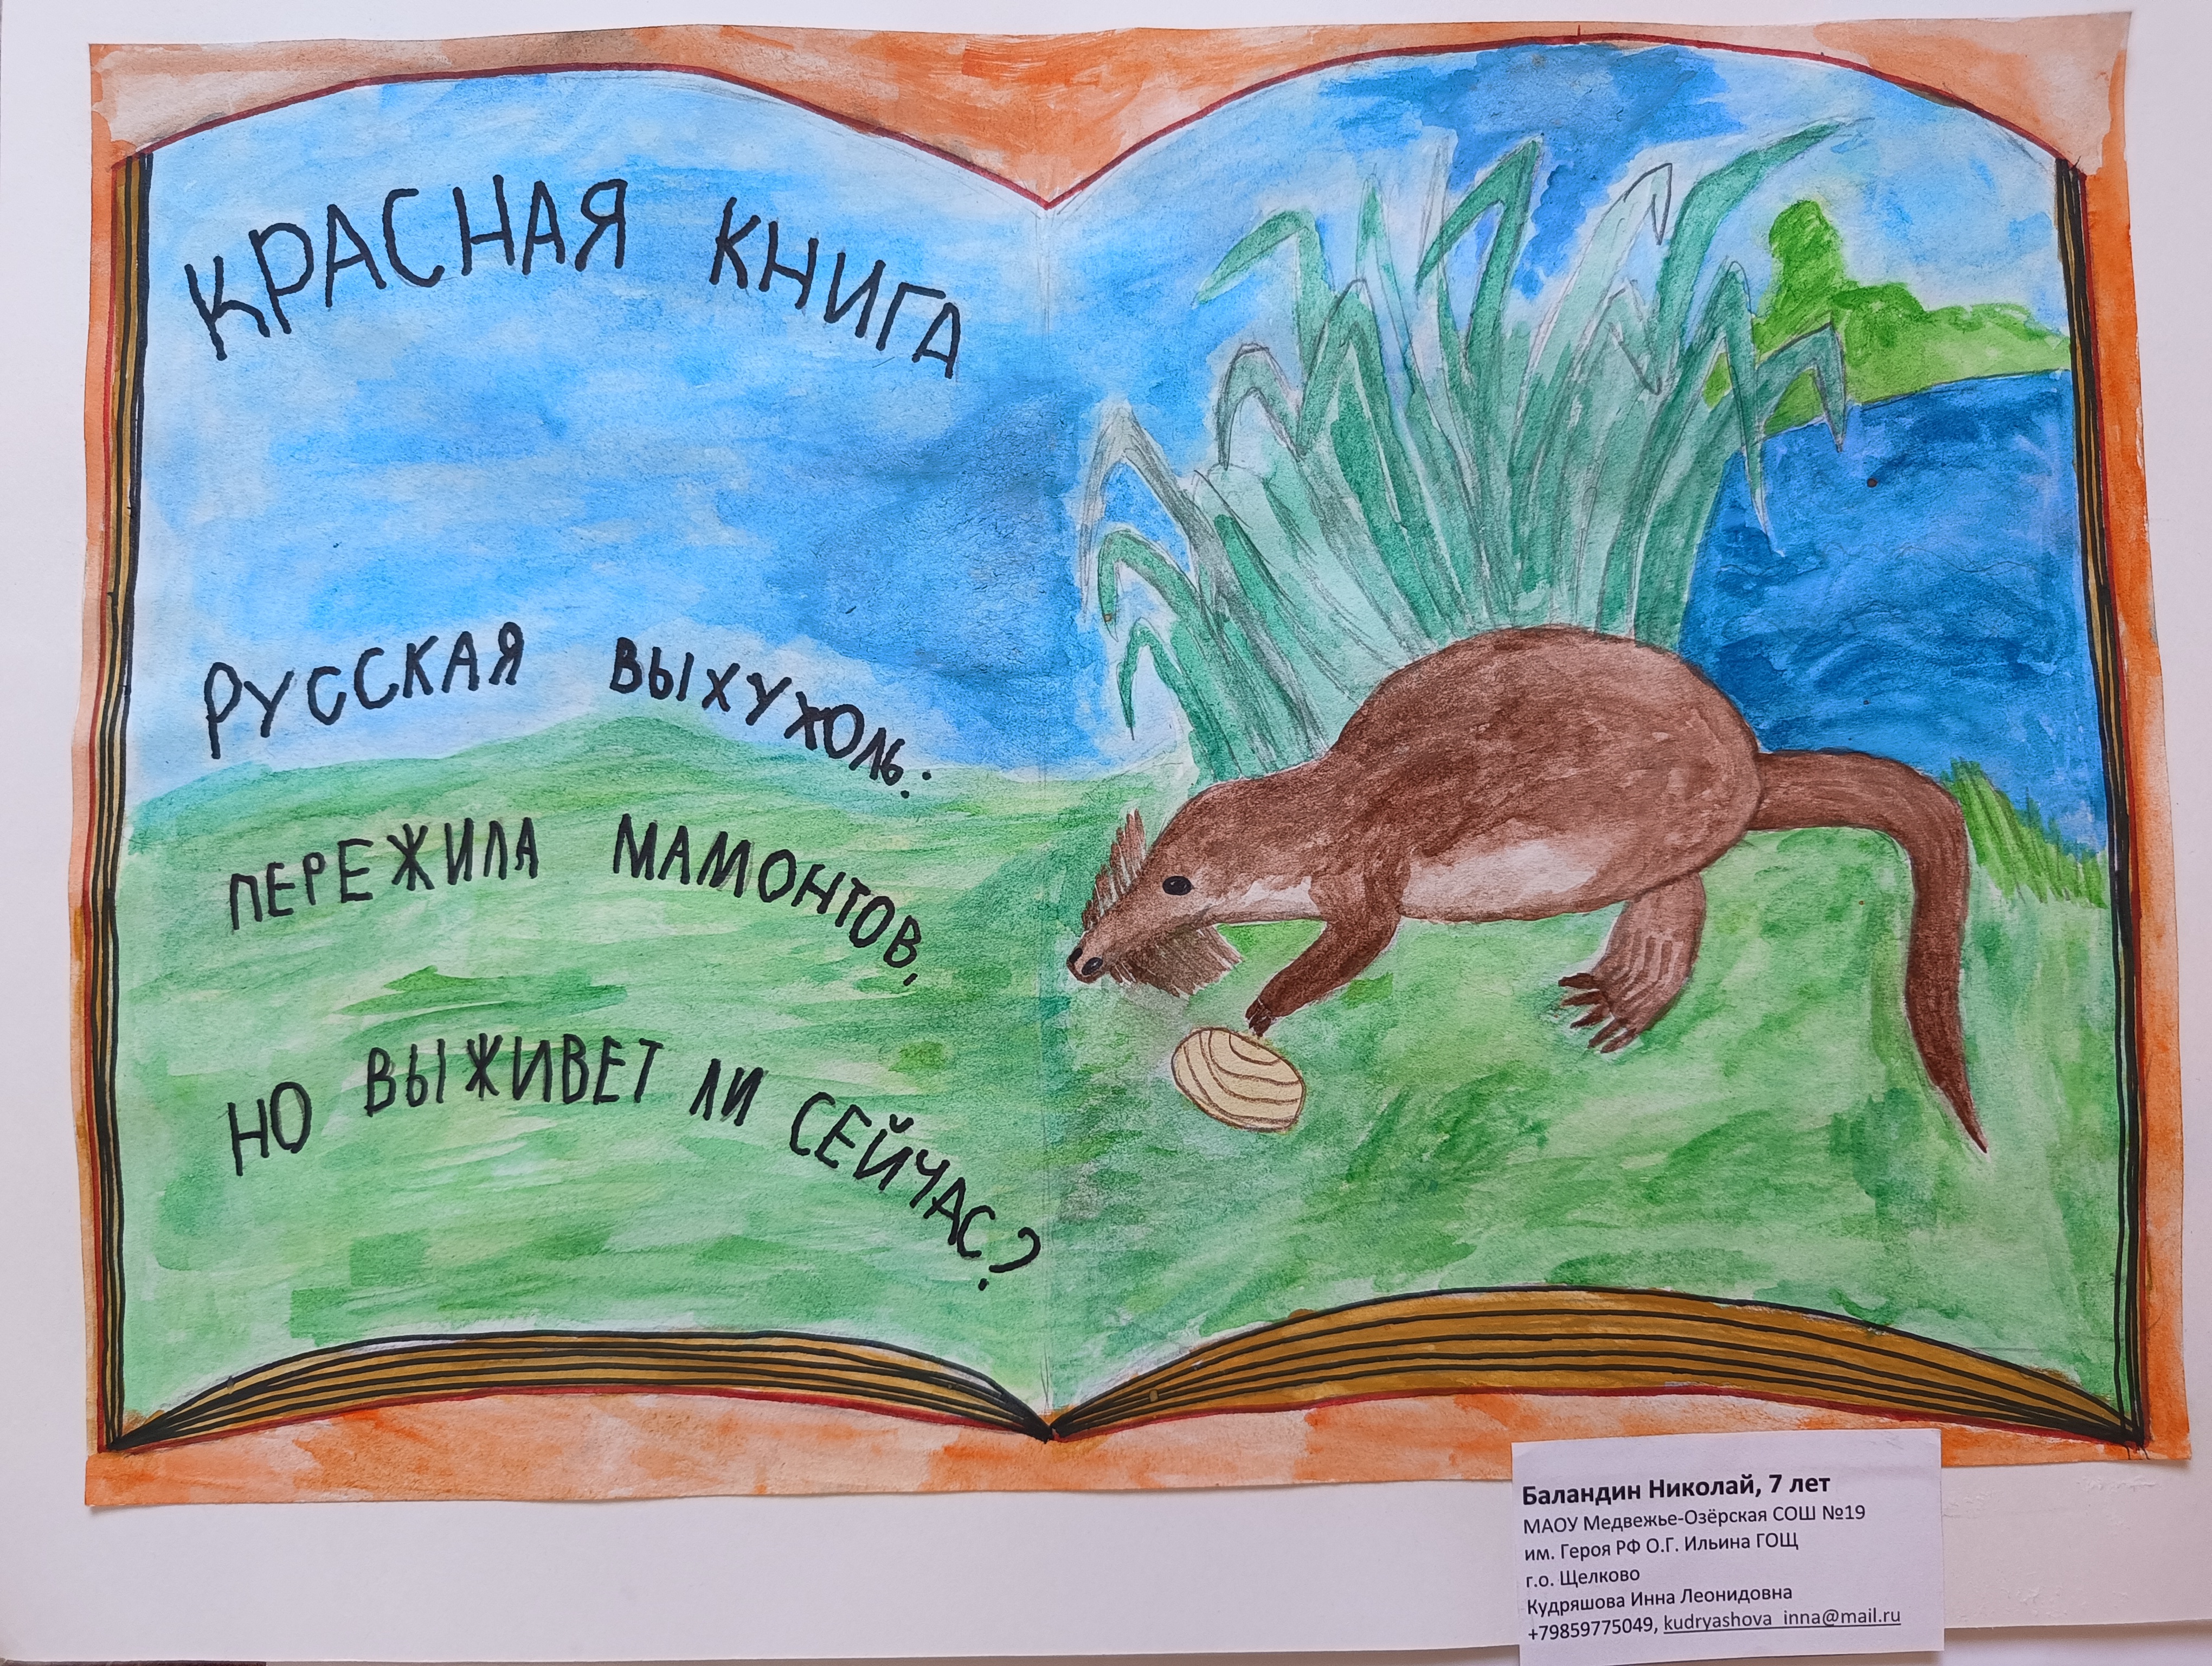 КРАСНАЯ КНИГА
РУССКАЯ ВЫХУХОЛЬ:
ПЕРЕЖИЛА МАМОНТОВ,
НО ВЫЖИВЕТ ЛИ СЕЙЧАС?
Баландин Николай, 7 лет
МАОУ Медвежье-Озёрская СОШ №19
им. Героя РФ О.Г. Ильина ГОЩ
г.о. Щелково
Кудряшова Инна Леонидовна
+79859775049, kudryashova_inna@mail.ru